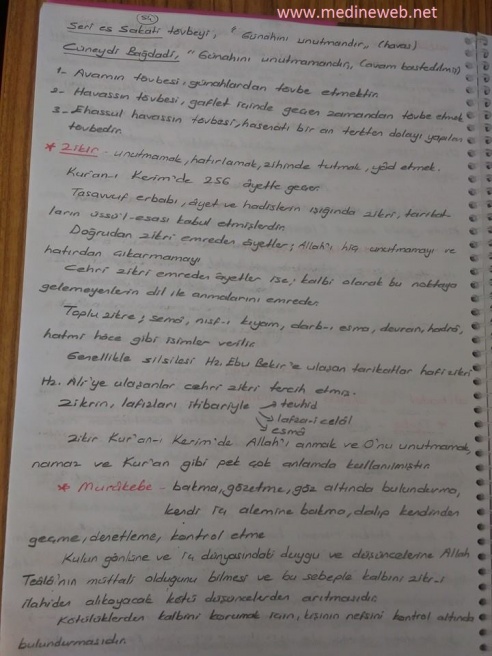 www.medineweb.net
Seri es Sakati tevbeyi, "Günahını unutmandır, (havas)
Cüneydi Bağdadi, "Günahını unutmamandır, (avam kastedilmiş)
1- Avamın tevbesi, günahlardan tevbe etmektir.
2- Havassın tevbesi, gaflet içinde geçen zamandan tevbe etmek
3- Ehassul havassın tevbesi, hasenatı bir an terkten dolayı yapılan
tevbedir.
* Zikir - unutmamak, hatırlamak, zihinde tutmak, yâd etmek.
Kur'an-ı Kerim'de 256 âyette geçer.
Tasavvuf erbabı, âyet ve hadislerin ışığında zikri, tarikat-
ların üssü'l-esası kabul etmişlerdir.
Doğrudan zikri emreden âyetler; Allah'ı hiç unutmamayı ve
hatırdan çıkarmamayı
Cehri zikri emreden âyetler ise; kalbi olarak bu noktaya
gelemeyenlerin dil ile anmalarını emreder.
Toplu zikre; semâ, nısf-ı kıyam, darb-ı esma, devran, hadrâ,
hatmi hâce gibi isimler verilir.
Genellikle silsilesi Hz. Ebu Bekir'e ulaşan tarikatlar hafi zikri
Hz. Ali'ye ulaşanlar cehri zikri tercih etmiş.
Zikrin, lafızları itibariyle → tevhid
→ lafza-i celâl
→ esmâ
Zikir Kur'an-ı Kerim'de Allah'ı anmak ve O'nu unutmamak,
namaz ve Kur'an gibi pek çok anlamda kullanılmıştır.
* Murâkebe - bakma, gözetme, göz altında bulundurma,
kendi iç alemine bakma, dalıp kendinden
geçme, denetleme, kontrol etme
Kulun gönlüne ve iç dünyasındaki duygu ve düşüncelerine Allah
Teâlâ'nın müttali olduğunu bilmesi ve bu sebeple kalbini zikr-i
ilahiden alıkoyacak kötü düşüncelerden arıtmasıdır.
Kötülüklerden kalbini korumak için, kişinin nefsini kontrol altında
bulundurmasıdır.